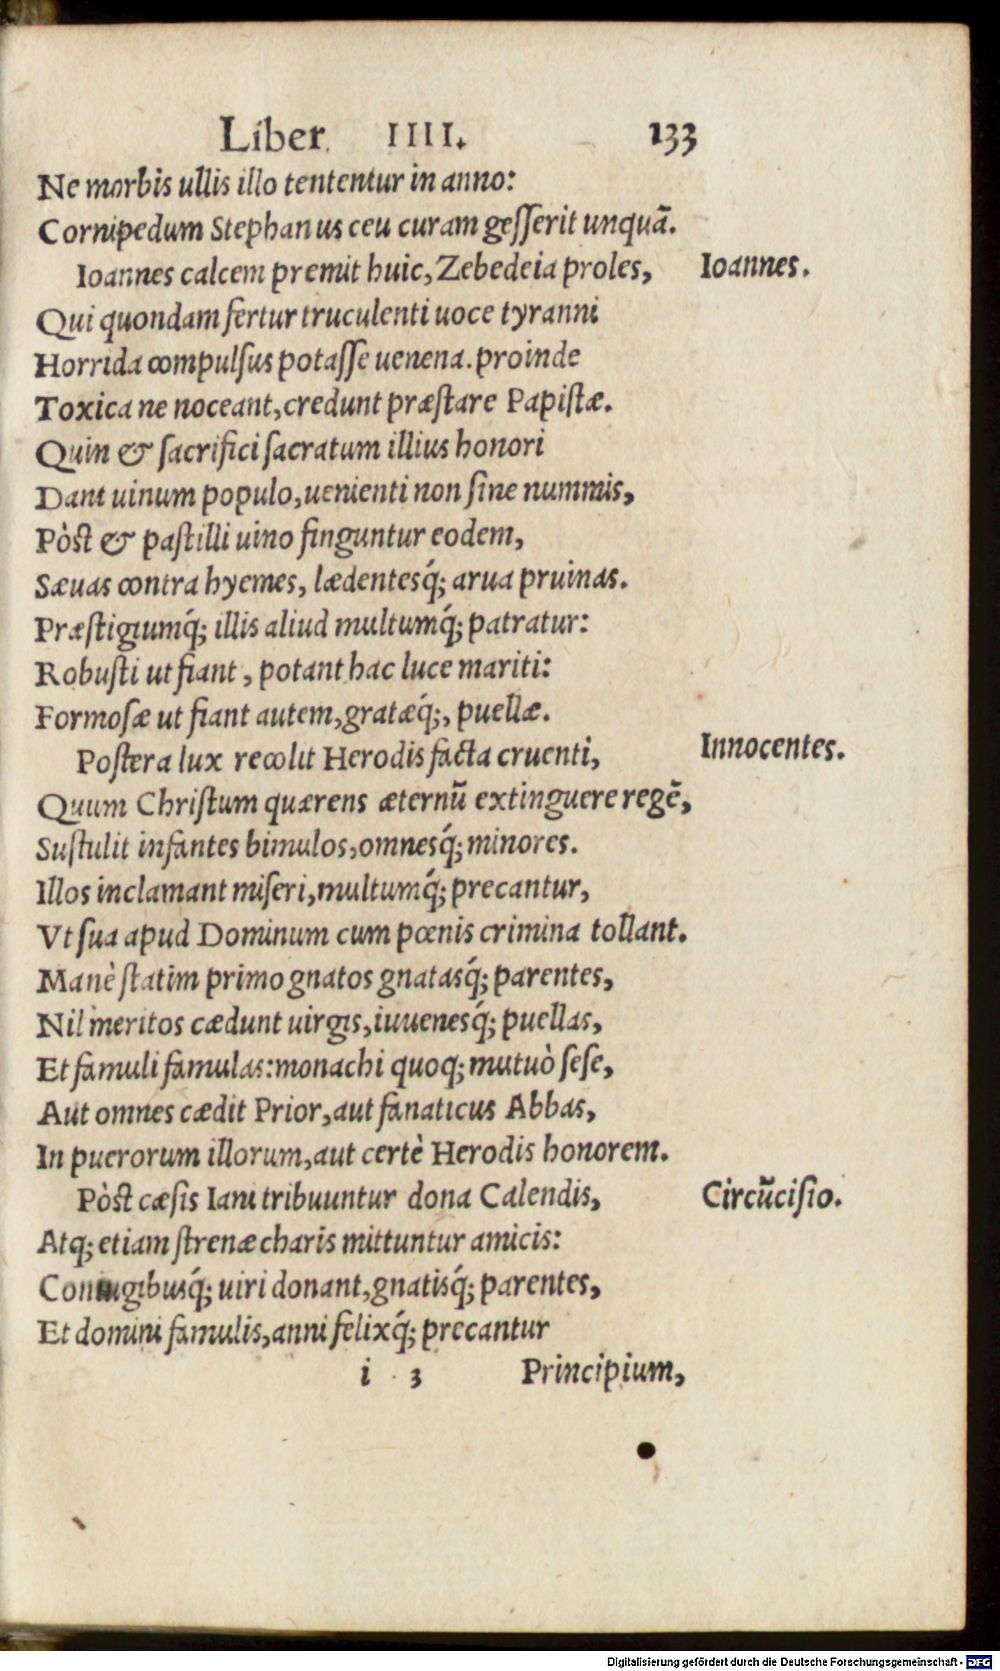 Liber IIII. 133
Ne morbis ullis illo tententur in anno:
Cornipedum Stephanus ceu curam gesserit unquā.
Ioannes calcem premit huic, Zebedeia proles,
Ioannes.
Qui quondam fertur truculenti uoce tyranni
Horrida compulsus potasse uenena. proinde
Toxica ne noceant, credunt præstare Papistæ.
Quin & sacrifici sacratum illius honori
Dant uinum populo, uenienti non sine nummis,
Pòst & pastilli uino finguntur eodem,
Sæuas contra hyemes, lædentesq́; arua pruinas.
Præstigiumq́; illis aliud multumq́; patratur:
Robusti ut fiant, potant hac luce mariti:
Formosæ ut fiant autem, gratæq́;, puellæ.
Postera lux recolit Herodis facta cruenti,
Innocentes.
Quum Christum quærens æternū extinguere regē,
Sustulit infantes bimulos, omnesq́; minores.
Illos inclamant miseri, multumq́; precantur,
Vt sua apud Dominum cum pœnis crimina tollant.
Manè statim primo gnatos gnatasq́; parentes,
Nil meritos cædunt uirgis, iuuenesq́; puellas,
Et famuli famulas: monachi quoq; mutuò sese,
Aut omnes cædit Prior, aut fanaticus Abbas,
In puerorum illorum, aut certè Herodis honorem.
Pòst cæsis Iani tribuuntur dona Calendis,
Circūcisio.
Atq; etiam strenæ charis mittuntur amicis:
Coniugibusq́; uiri donant, gnatisq́; parentes,
Et domini famulis, anni felixq́; precantur
i 3 Principium,
Digitalisierung gefördert durch die Deutsche Forschungsgemeinschaft - DFG